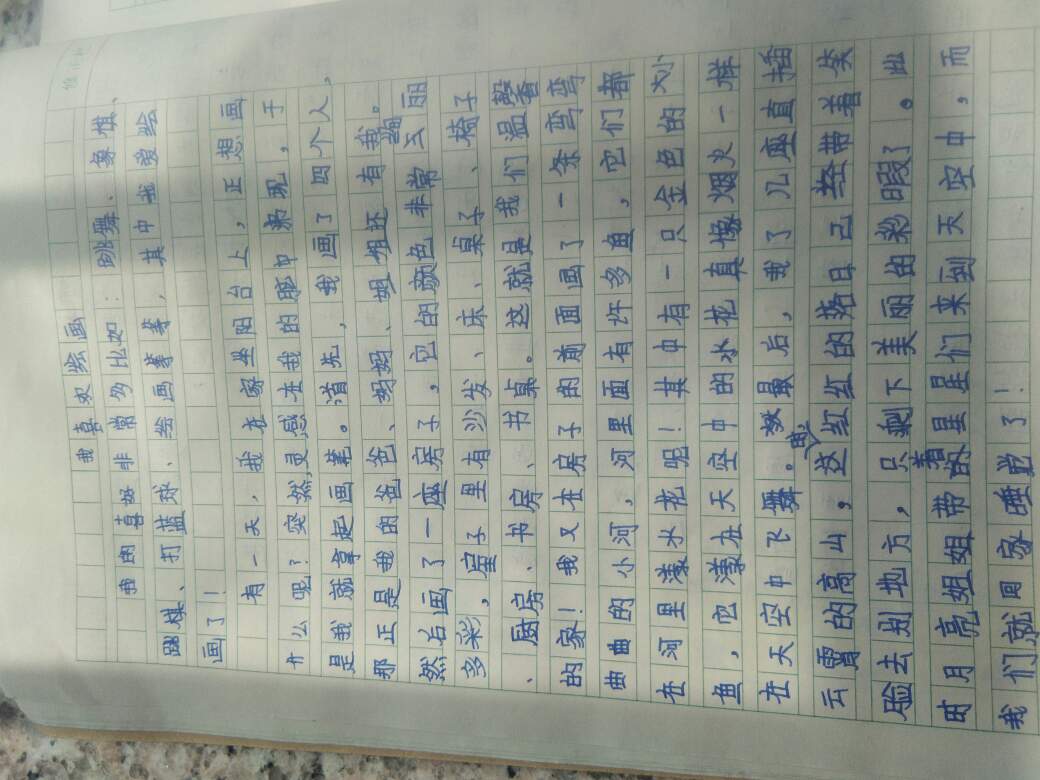 我喜欢绘画
我的喜好非常多比如：跳舞、象棋、
跳棋、打蓝球、绘画等等，其中我爱绘
画了！
有一天，我在家坐阳台上，正想画
什么呢？突然，灵感在我的脑中弗现，于
是我就拿起画笔。首先，我画了四个人，
那正是我的爸爸、妈妈、姐姐还有我。
然后画了一座房子，它的颜色非常五丽
多彩，屋子里有沙发、床、桌子、椅子
、厨房、书房、书桌。这就是我们温馨
的家！我又在房子的前面画了一条弯弯
曲曲的小河，河里面有许多鱼，它们都
在河里漾水花呢！其中有一只金色的大小
鱼，它漾在天空中的水花真像烟火一样
在天空中飞舞。最后，我了几座直插
云霄的高山，这红红的落日已经带着笑
脸去别地方，只剩下美丽的彩暇了。此
时月亮姐姐带着星星们来到天空中，而
我们就回家睡觉了！